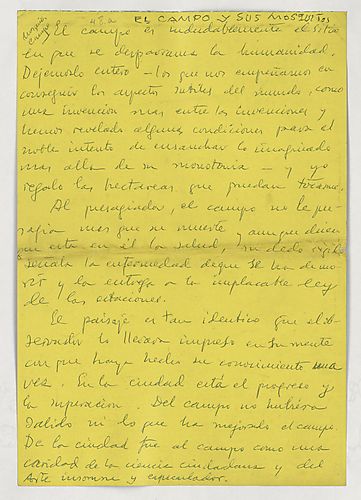 48.a
EL CAMPO Y SUS MOSQUITOS
El campo es indudablemente el sitio
en que se desparrama la humanidad.
Dejemoslo entero – los que nos empeñamos en
conseguir los aspectos sutiles del mundo, como
una invencion mas entre las invenciones y
hemos revelado algunas condiciones para el
noble intento de ensanchar lo imaginado
mas alla de su monotonia – y yo
regalo las hectareas que puedan tocarme.
Al presagiador, el campo no le pre-
sagia mas que su muerte y aunque dicen
que esta en él la salud, su dedo rigido
señala la enfermedad de que se ha de mo-
rir y la entrega a la implacable ley
de las estaciones.
El paisaje es tan identico que el ob-
servador lo llevara impreso en su mente
con que haya hecho su conocimiento una
vez. En la ciudad está el progreso y
la superacion. Del campo no hubiera
salido ni lo que ha mejorado el campo.
De la ciudad fue al campo como una
caridad de la ciencia ciudadana y del
Arte insomne y especulador.